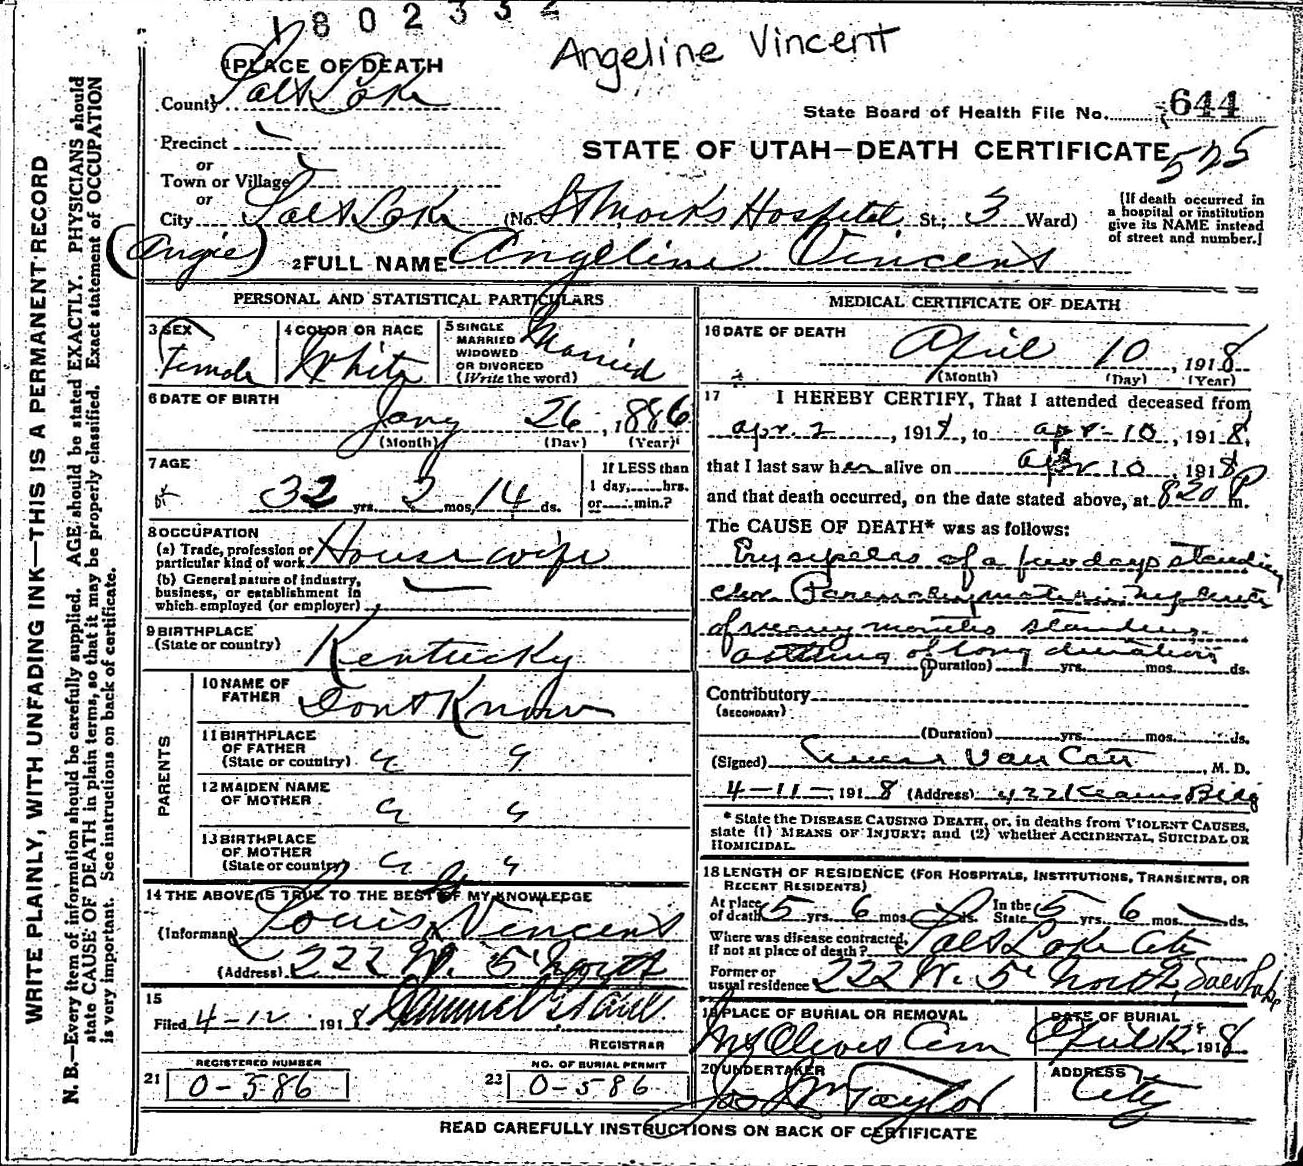 1802332
Angeline Vincent
1 PLACE OF DEATH
County Salt Lake
State Board of Health File No. 644
Precinct
or
STATE OF UTAH—DEATH CERTIFICATE
575
Town or Village
or
City Salt Lake (No. St Marks Hospital St.; 3 Ward)
[If death occurred in a hospital or institution give its NAME instead of street and number.]
(Angie)
2 FULL NAME Angeline Vincent
WRITE PLAINLY, WITH UNFADING INK—THIS IS A PERMANENT RECORD
N. B.—Every item of information should be carefully supplied. AGE should be stated EXACTLY. PHYSICIANS should
state CAUSE OF DEATH in plain terms, so that it may be properly classified. Exact statement of OCCUPATION
is very important. See instructions on back of certificate.
PERSONAL AND STATISTICAL PARTICULARS
3 SEX
Female
4 COLOR OR RACE
White
5 SINGLE
MARRIED
WIDOWED
OR DIVORCED
(Write the word)
Married
6 DATE OF BIRTH
Jany 26, 1886
(Month) (Day) (Year)
7 AGE
32 yrs. 2 mos. 14 ds.
If LESS than
1 day, hrs.
or min.?
8 OCCUPATION
(a) Trade, profession or
particular kind of work Housewife
(b) General nature of industry,
business, or establishment in
which employed (or employer)
9 BIRTHPLACE
(State or country) Kentucky
PARENTS
10 NAME OF
FATHER Dont Know
11 BIRTHPLACE
OF FATHER
(State or country) " "
12 MAIDEN NAME
OF MOTHER " "
13 BIRTHPLACE
OF MOTHER
(State or country) " "
14 THE ABOVE IS TRUE TO THE BEST OF MY KNOWLEDGE
(Informant) Louis Vincent
(Address) 222 W. 5 North
15
Filed 4-12 1918
REGISTRAR
REGISTERED NUMBER
21 0-586
NO. OF BURIAL PERMIT
22 0-586
MEDICAL CERTIFICATE OF DEATH
16 DATE OF DEATH
April 10, 1918
(Month) (Day) (Year)
17 I HEREBY CERTIFY, That I attended deceased from
apr. 2, 1918, to apr-10, 1918,
that I last saw her alive on apr 10, 1918
and that death occurred, on the date stated above, at 820 P m.
The CAUSE OF DEATH* was as follows:
Erysipelas of a few days standing
chr. Parenchymatous Nephritis
of many months standing
asthma of long duration
(Duration) yrs. mos. ds.
Contributory
(SECONDARY)
(Duration) yrs. mos. ds.
(Signed) Van Cott, M. D.
4-11-, 1918 (Address) 422 Kearns Bldg
* State the DISEASE CAUSING DEATH, or, in deaths from VIOLENT CAUSES,
state (1) MEANS OF INJURY; and (2) whether ACCIDENTAL, SUICIDAL OR
HOMICIDAL.
18 LENGTH OF RESIDENCE (FOR HOSPITALS, INSTITUTIONS, TRANSIENTS, OR
RECENT RESIDENTS)
At place of death 5 yrs. 6 mos. ds. In the State 5 yrs. 6 mos. ds.
Where was disease contracted,
if not at place of death? Salt Lake City
Former or
usual residence 222 W. 5 North, Salt Lake
19 PLACE OF BURIAL OR REMOVAL
Mt Olivet Cem
DATE OF BURIAL
April 12, 1918
20 UNDERTAKER
Jos Wm Taylor
ADDRESS
City
READ CAREFULLY INSTRUCTIONS ON BACK OF CERTIFICATE